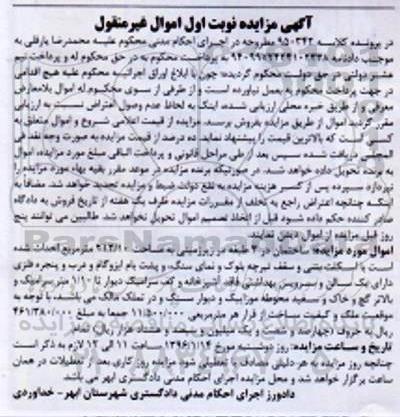 آگهی مزایده نوبت اول اموال غیرمنقول
در پرونده کلاسه ۹۵۰۳۴۳ مطروحه در اجرای احکام مدنی محکوم علیه محمدرضا یارقلی به
موجب دادنامه به پرداخت محکوم به در حق محکوم له و پرداخت نیم
عشر دولتی در حق دولت محکوم گردیده؛ چون با ابلاغ اوراق اجرائیه محکوم علیه هیچ اقدامی
در جهت پرداخت محکوم به بعمل نیاورده است و از طرفی از سوی محکوم له اموال بلامعارض
معرفی و از طریق خبره محلی ارزیابی شده، اینک به لحاظ عدم وصول اعتراض نسبت به ارزیابی
مقرر گردید اموال از طریق مزایده بفروش برسد. مزایده از قیمت اعلامی شروع و اموال متعلق به
کسی است که بالاترین قیمت را پیشنهاد نماید ده درصد از قیمت مزایده به صورت وجه نقد فی
المجلس دریافت شده سپس بعد از طی مراحل قانونی و پرداخت الباقی مبلغ مورد مزایده، اموال
به برنده تحویل داده خواهد شد. در صورتیکه برنده مزایده در موعد مقرر بقیه بهاء مورد مزایده را
نپردازد سپرده پس از کسر هزینه مزایده به نفع دولت ضبط و مزایده تجدید خواهد شد. مضافاً به
اینکه چنانچه اعتراض راجع به تخلف از مقررات مزایده ظرف یک هفته از تاریخ فروش به دادگاه
صادر کننده حکم داده شود قبل از اتخاذ تصمیم اموال تحویل نخواهد شد. طالبین می توانند پنج
روز قبل مزایده از اموال دیدن نمایند.
اموال مورد مزایده: ساختمان در ۲ طبقه در زیرزمینی به مساحت مترمربع احداث شده
است با اسکلت بتنی و سقف تیرچه بلوک و نمای سنگ، و پشت بام ایزوگام و درب و پنجره فلزی
دارای یک سالن و سرویس بهداشتی فاقد آشپزخانه و کف سرامیک دیوار تا سرامیک و
بالاتر گچ و خاک و سفید محوطه موزاییک و دیوار سنگ و در تملک مالک می باشد، با توجه به
موقعیت ملک و کیفیت ساخت از قرار هر مترمربعی ۱۱/۵۰۰/۰۰۰ جمعا به مبلغ
ریال به حروف (چهارصد و شصت و یک میلیون و سیصد و هشتاد هزار ریال) تمام
تاریخ و ساعت مزایده: روز دوشنبه مورخ ۱۳۹۶/۱/۱۴ ساعت ۱۱ الی ۱۲ لازم به ذکر است
چنانچه روز مزایده به هر دلیلی مصادف با تعطیلی شود مزایده روز کاری بعد از تعطیلات در همان
ساعت برگزار خواهد شد و محل مزایده اجرای احکام مدنی دادگستری ابهر می باشد.
دادورز اجرای احکام مدنی دادگستری شهرستان ابهر- خداوردی
ParsNamadData